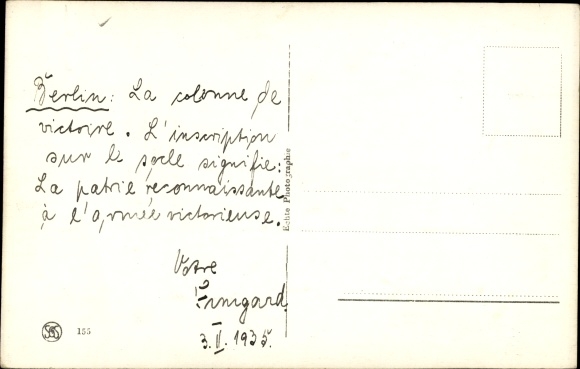 Berlin: La colonne de
victoire. L'inscription
sur le socle signifie:
La patrie reconnaissante
à l'armée victorieuse.
Votre
Irmgard.
3.II.1935.
Echte Photographie
155